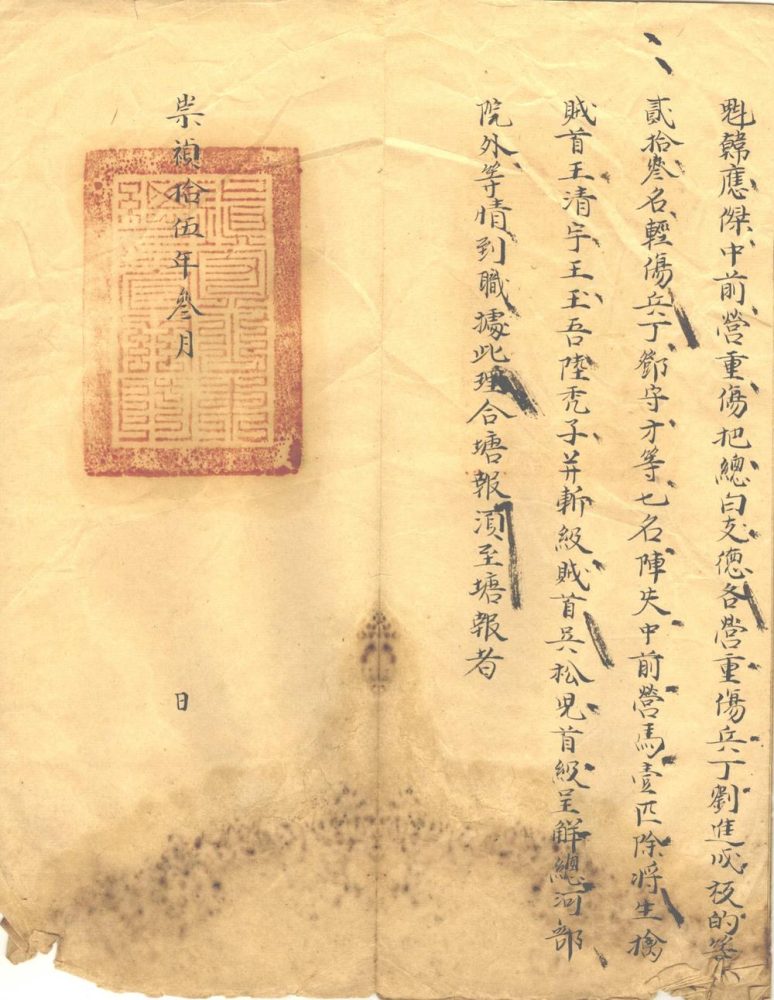 魁韓應傑中前營重傷把總白友德各營重傷兵丁劉進成 的等
貳拾叄名輕傷兵丁鄧守才等七名陣失中前營馬壹匹除將生擒
賊首王清宇王玉吾陸禿子并斬級賊首吳松兒首級呈解總河部
院外等情到職據此理合塘報湏至塘報者
崇禎拾伍年叄月
日